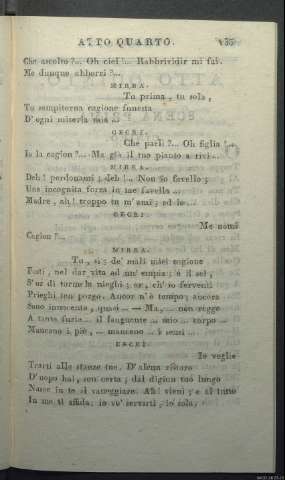 ATTO QUARTO.
Che ascolto ?... Oh ciel !... Rabbrividir mi fai.
Me dunque abborri ?...
MIRRA.
Tu prima, tu sola,
Tu sempiterna cagione funesta
D'ogni miseria mia ...
CECRI.
Che parli ?... Oh figlia !...
Io la cagion ?... Ma già il tuo pianto a rivi...
MIRRA.
Deh! perdonami; deh!.. Non io favello;
Una incognita forza in me favella ...
Madre, ah! troppo tu m'ami; ed io ..
CECRI.
Me nomi
Cagion ?...
MIRRA.
Tu, sì; de' mali miei cagione
Fosti, nel dar vita ad un' empia; e il sei,
S'or di tormela nieghi; or, ch'io ferventi
Prieghi ten porgo. Ancor n'è tempo; ancora
Sono innocente, quasi ... — Ma, ... non regge
A tante furie ... il languente ... mio ... corpo ...
Mancano i piè, ... mancano .. i sensi ...
CECRI.
Io voglio
Trarti alle stanze tue. D'alcun ristoro
D'uopo hai, son certa; dal digiun tuo lungo
Nasce in te il vaneggiare. Ah! vieni; e al tutto
In me ti affida: io vo' servirti, io sola.